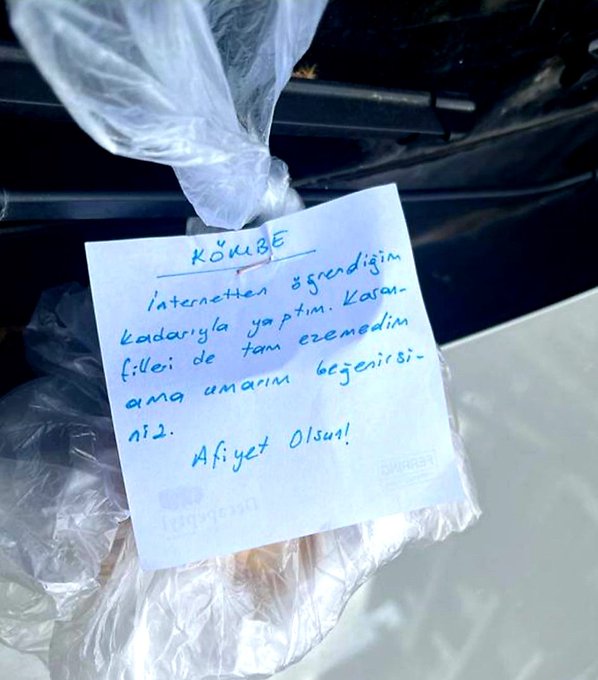 KÖMBE
İnternetten öğrendiğim
kadarıyla yaptım. Karan-
filleri de tam ezemedim
ama umarım beğenirsi-
niz.
Afiyet Olsun!